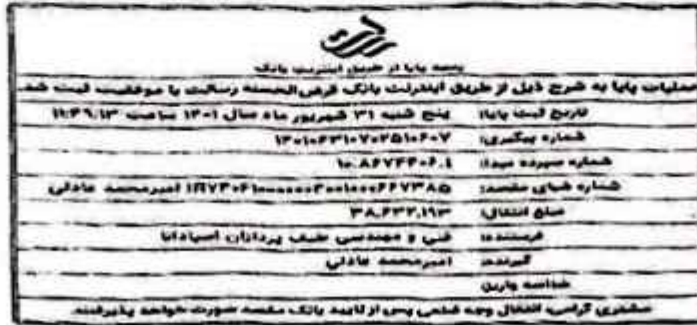 رسید پایا از طریق اینترنت بانک
عملیات پایا به شرح ذیل از طریق اینترنت بانک قرض الحسنه رسالت با موفقیت ثبت شد.
تاریخ ثبت پایا: پنج شنبه ۳۱ شهریور ماه سال ۱۴۰۱ ساعت ۱۱:۴۹:۱۳
شماره پیگیری:
شماره سپرده مبدا: ۱۰.۸۶۷۴۴۰۶.۱
شماره شبای مقصد: امیرمحمد عادلی
مبلغ انتقال: ۳۸,۶۳۲,۱۹۳
فرستنده: فنی و مهندسی طیف پردازان اسپادانا
گیرنده: امیرمحمد عادلی
شناسه واریز:
مشتری گرامی، انتقال وجه قطعی پس از تایید بانک مقصد صورت خواهد پذیرفت.